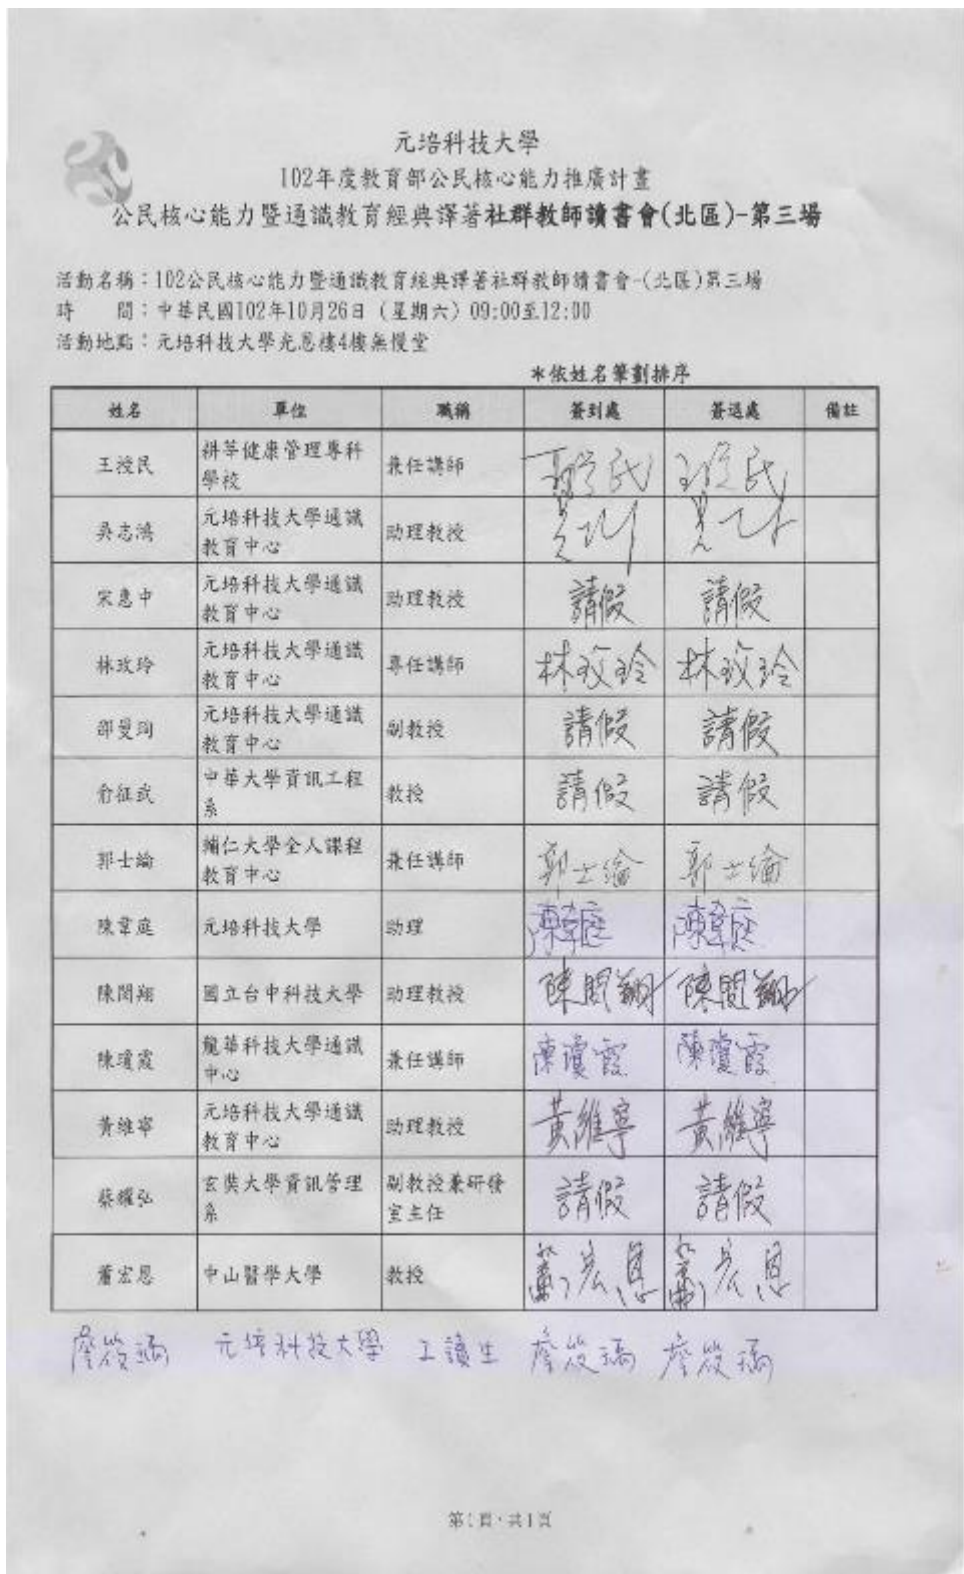 元培科技大學
102年度教育部公民核心能力推廣計畫
公民核心能力暨通識教育經典譯著社群教師讀書會(北區)-第三場
活動名稱：102公民核心能力暨通識教育經典譯著社群教師讀書會-(北區)第三場
時　　間：中華民國102年10月26日（星期六）09:00至12:00
活動地點：元培科技大學光恩樓4樓無慢堂
*依姓名筆劃排序
姓名 單位 職稱 簽到處 簽退處 備註
王授民 耕莘健康管理專科 兼任講師 王授民 王授民
學校
吳志鴻 元培科技大學通識 助理教授
教育中心
宋惠中 元培科技大學通識 助理教授 請假 請假
教育中心
林玫玲 元培科技大學通識 專任講師 林玫玲 林玫玲
教育中心
邵曼珣 元培科技大學通識 副教授 請假 請假
教育中心
俞征武 中華大學資訊工程 教授 請假 請假
系
郭士綸 輔仁大學全人課程 兼任講師 郭士綸 郭士綸
教育中心
陳韋庭 元培科技大學 助理 陳韋庭 陳韋庭
陳閔翔 國立台中科技大學 助理教授 陳閔翔 陳閔翔
陳瓊霞 龍華科技大學通識 兼任講師 陳瓊霞 陳瓊霞
中心
黃維寧 元培科技大學通識 助理教授 黃維寧 黃維寧
教育中心
蔡耀弘 玄奘大學資訊管理 副教授兼研發 請假 請假
系 室主任
蕭宏恩 中山醫學大學 教授 蕭宏恩 蕭宏恩
元培科技大學 工讀生
第1頁，共1頁